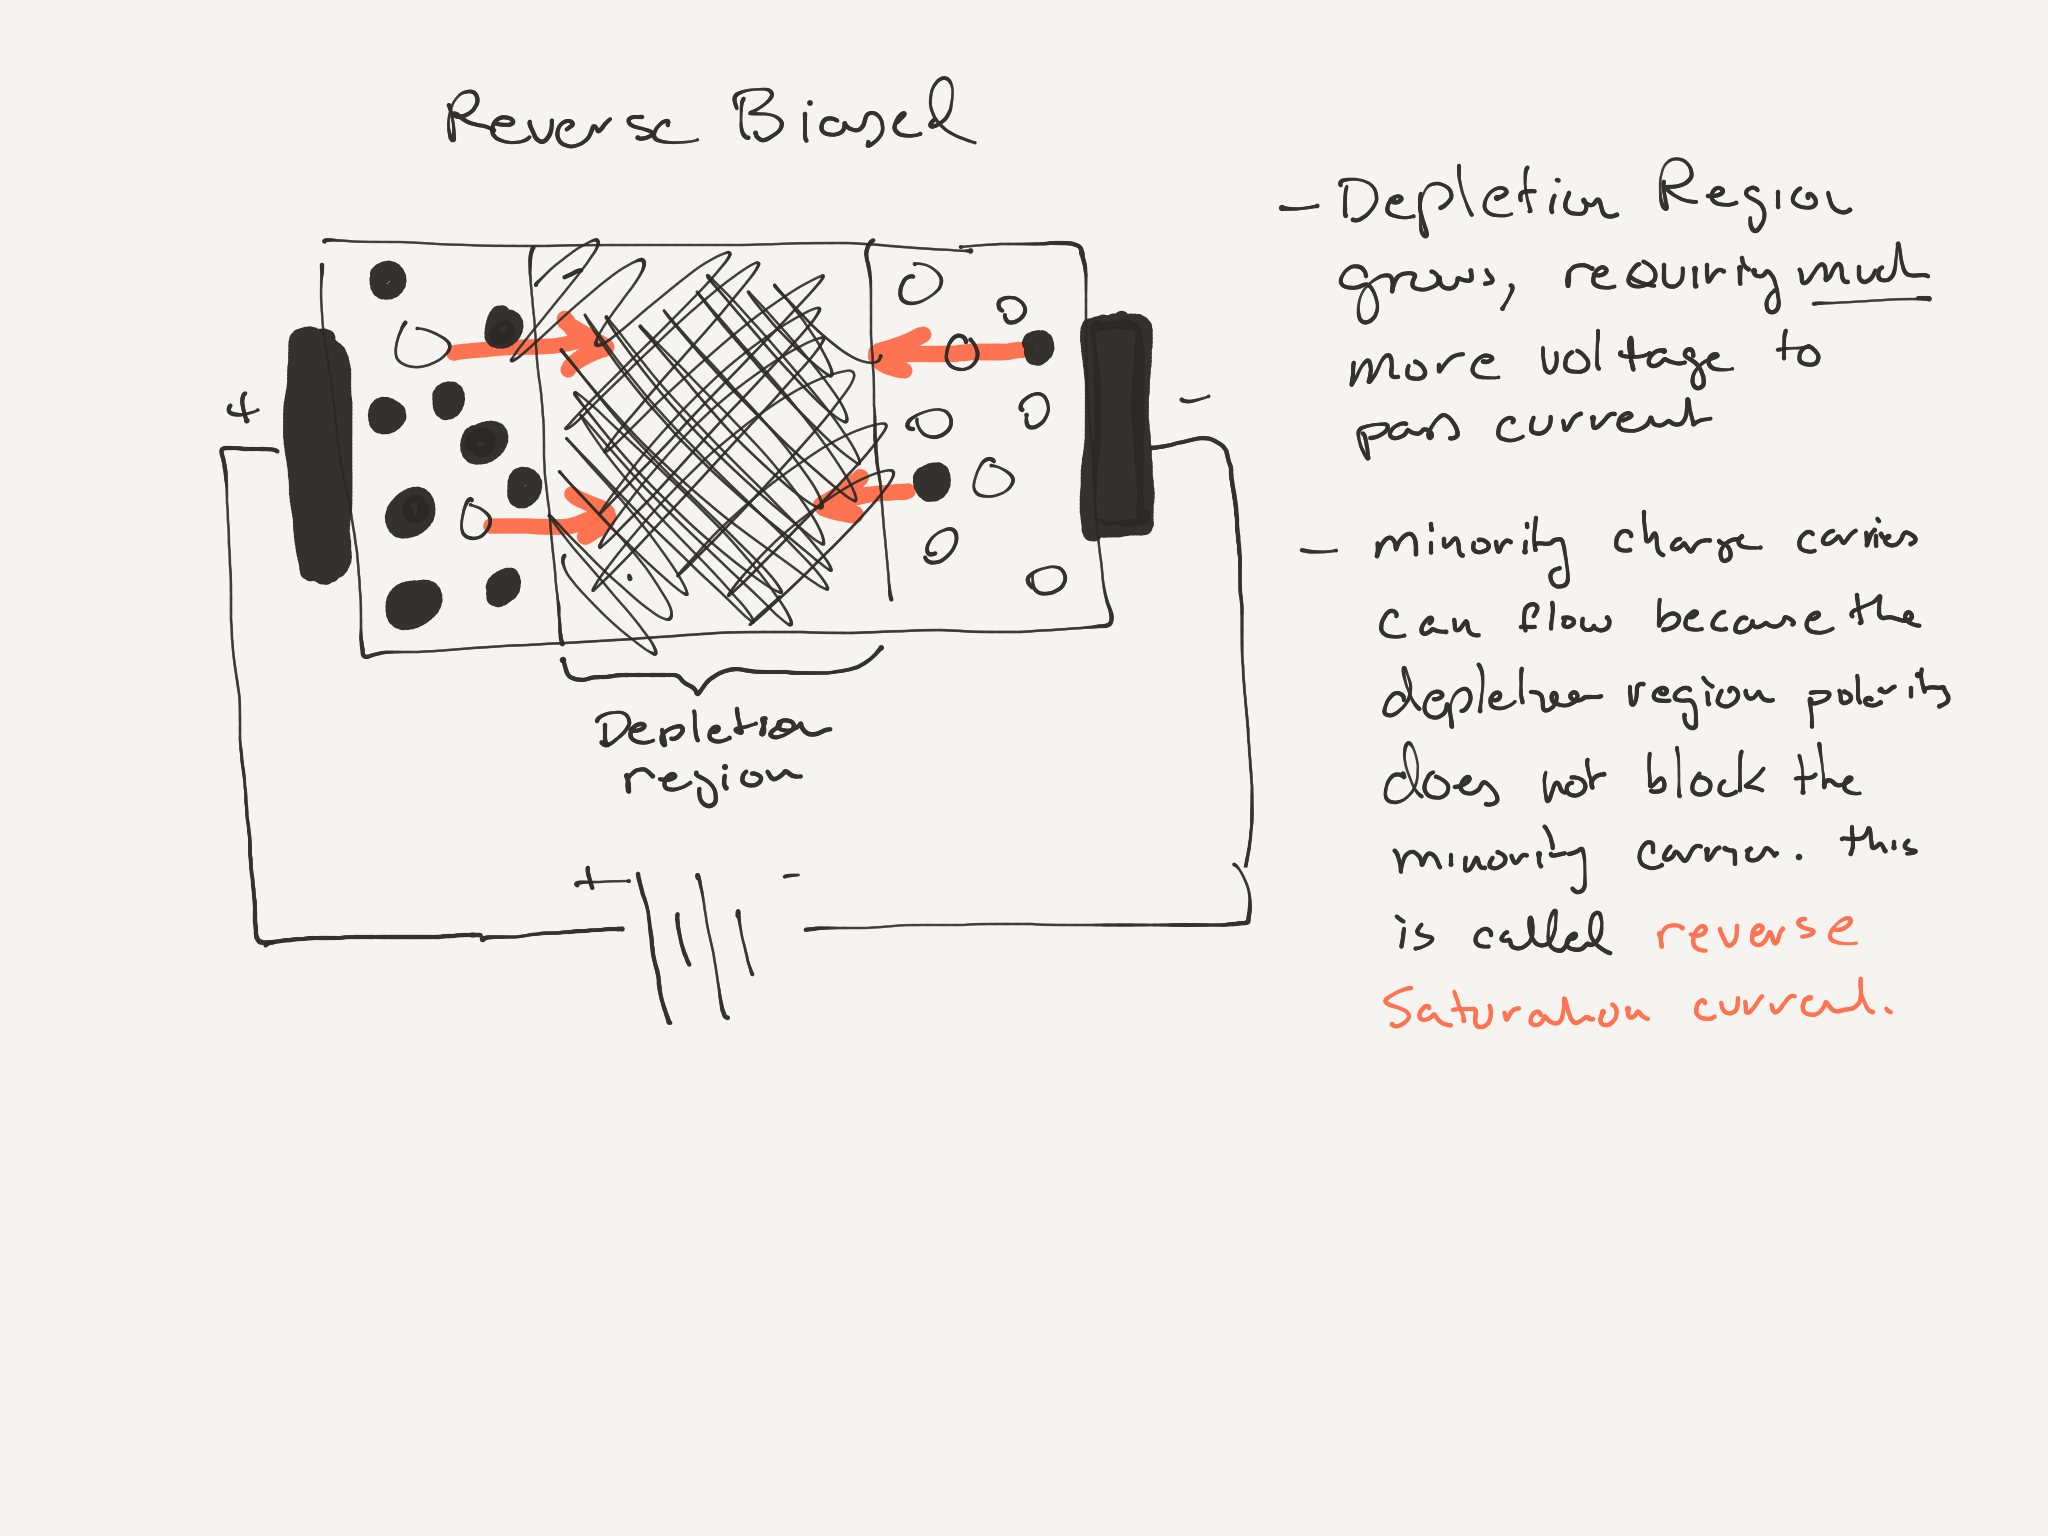 Reverse Biased
- Depletion Region
grows, requiring much
more voltage to
pass current
+
-
- minority charge carries
can flow because the
depletion region polarity
does not block the
minority carrier. this
is called reverse
saturation current.
Depletion
region
+
-